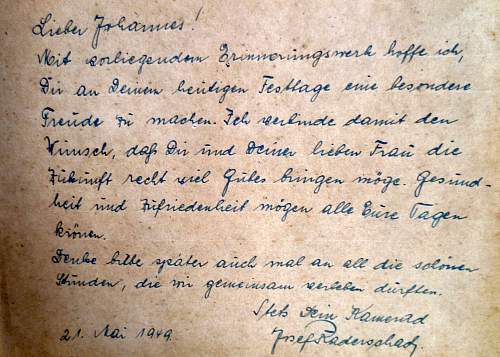 Lieber Johannes!
Mit vorliegendem Erinnerungswerk hoffe ich,
Dir an Deinem heutigen Festtage eine besondere
Freude zu machen. Ich verbinde damit den
Wunsch, daß Dir und Deiner lieben Frau die
Zukunft recht viel Gutes bringen möge. Gesund-
heit und Zufriedenheit mögen alle Eure Tagen
krönen.
Denke bitte später auch mal an all die schönen
Stunden, die wir gemeinsam verleben durften.
Stets Dein Kamerad
21. Mai 1949. Josef Raderschatz.